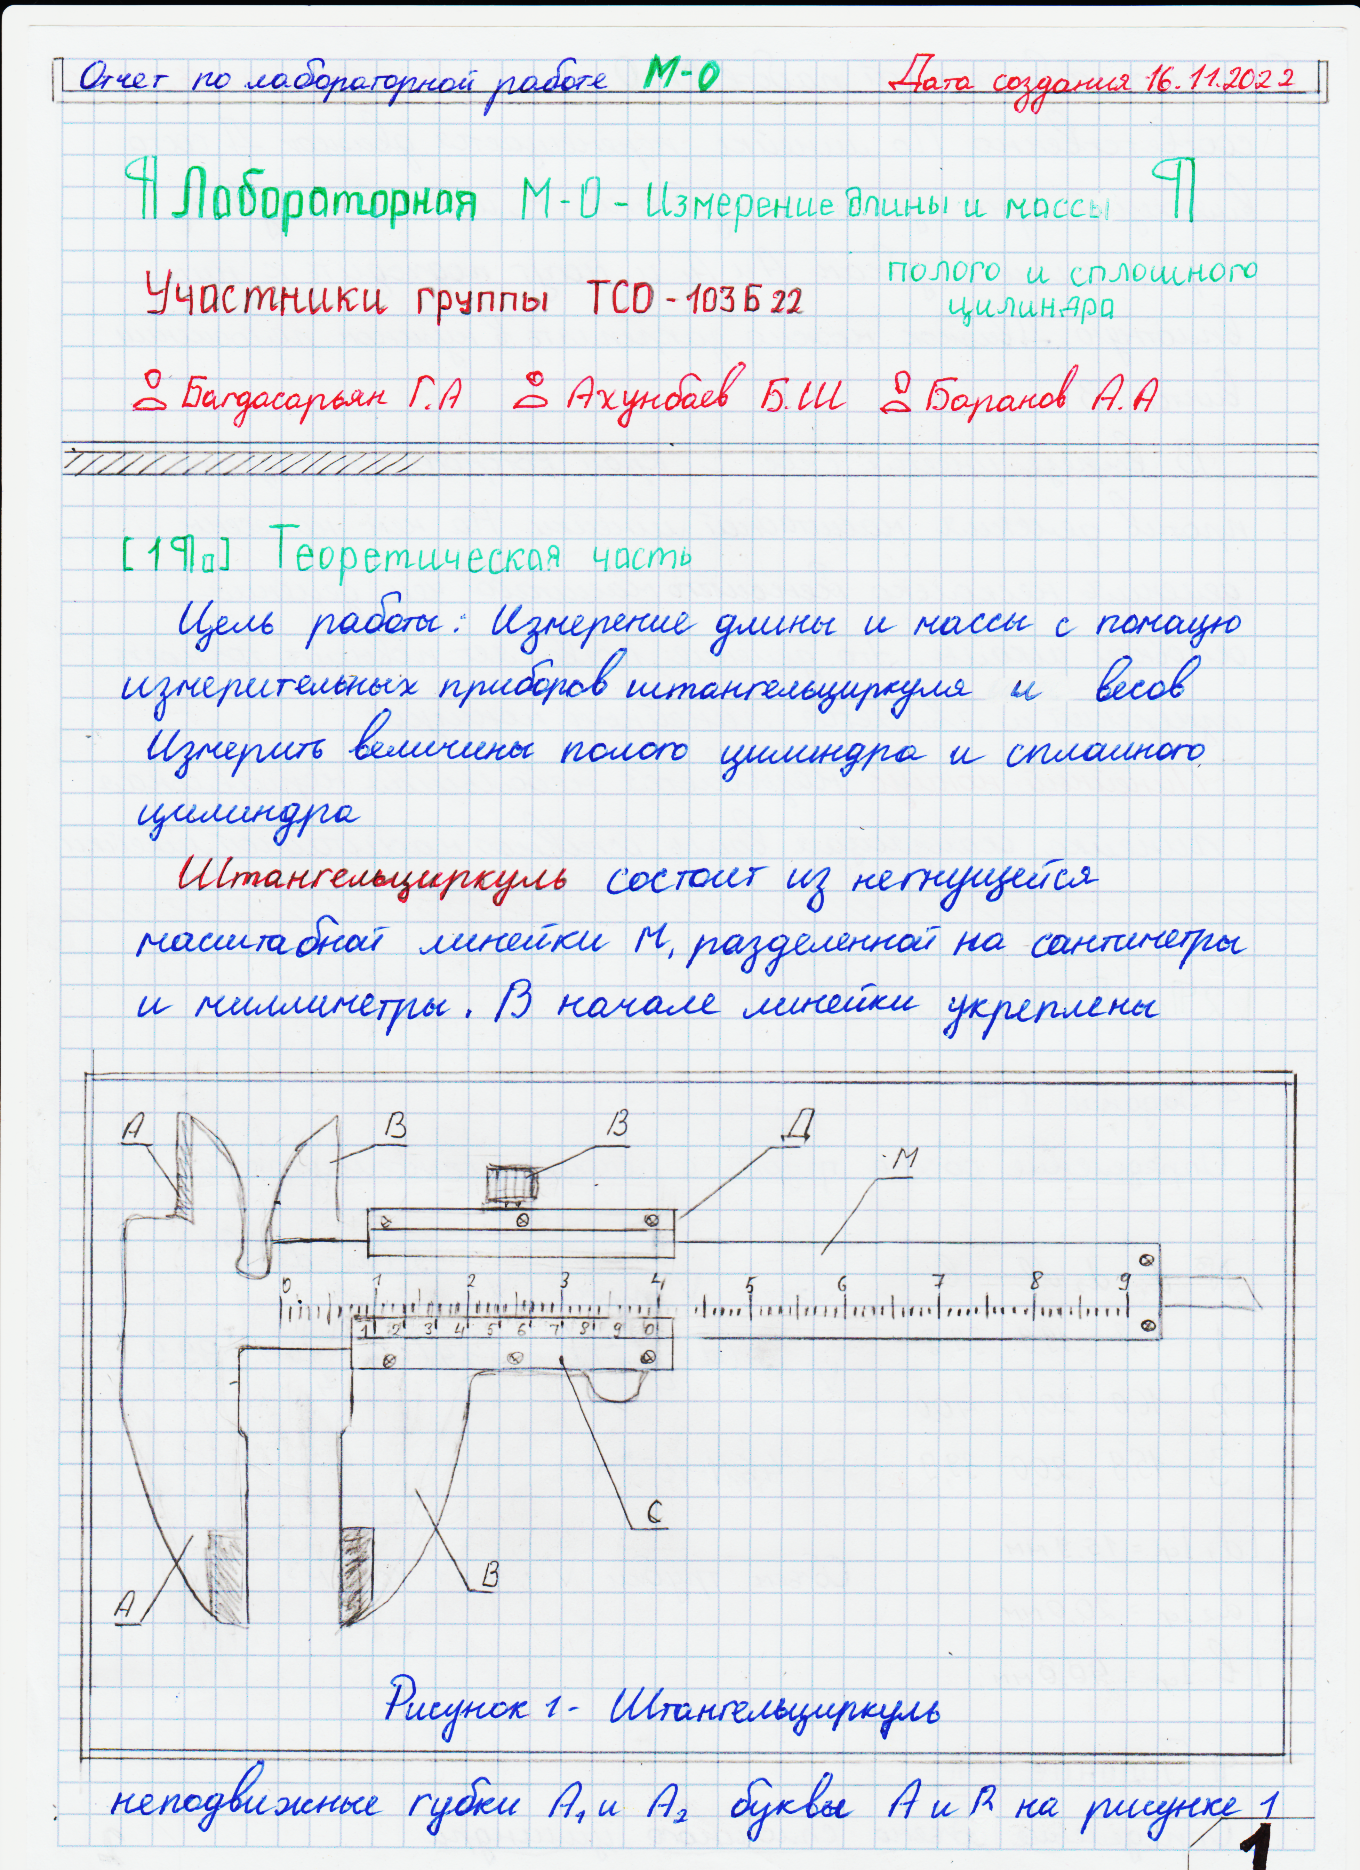 Отчет по лабораторной работе М-0 Дата создания 16.11.2022
¶ Лабораторная М-0 - Измерение длины и массы ¶
полого и сплошного
цилиндра
Участники группы ТСО-103Б22
Багдасарьян Г.А Ахунбаев Б.Ш Баранов А.А
[1¶□] Теоретическая часть
Цель работы: Измерение длины и массы с помащю
измерительных приборов штангельциркуля и весов
Измерить величины полого цилиндра и сплашного
цилиндра
Штангельциркуль состоит из негнущейся
масштабной линейки М, разделенной на сантиметры
и миллиметры. В начале линейки укреплены
А В В Д М
0 1 2 3 4 5 6 7 8 9
1 2 3 4 5 6 7 8 9 0
С
В
А
Рисунок 1 - Штангельциркуль
неподвижные губки А₁ и А₂ буквы А и В на рисунке 1
1